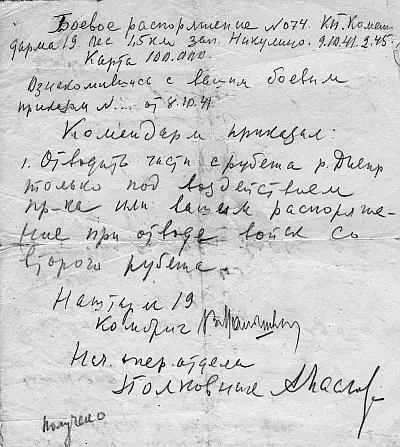 Боевое распоряжение №074. КП. Комен
дарма 19 лес 1,5 км зап. Никулино. 9.10.41. 2.45.
Карта 100.000.
Ознакомившись с вашим боевым
приказом №... от 8.10.41.
Комендарм приказал:
1. Отводить части с рубежа р. Днепр
только под воздействием
пр-ка или вашем распоряже-
ние при отводе войск со
второго рубежа.
Наштарм 19
Комбриг
Нач. опер. отдела
Полковник
получено